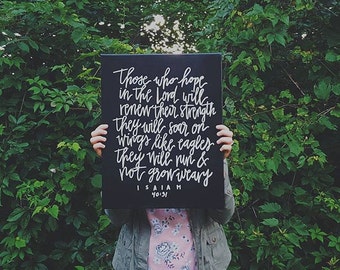 Those who hope
in the Lord will
renew their strength
they will soar on
wings like eagles
they will run &
not grow weary
ISAIAH
40:31